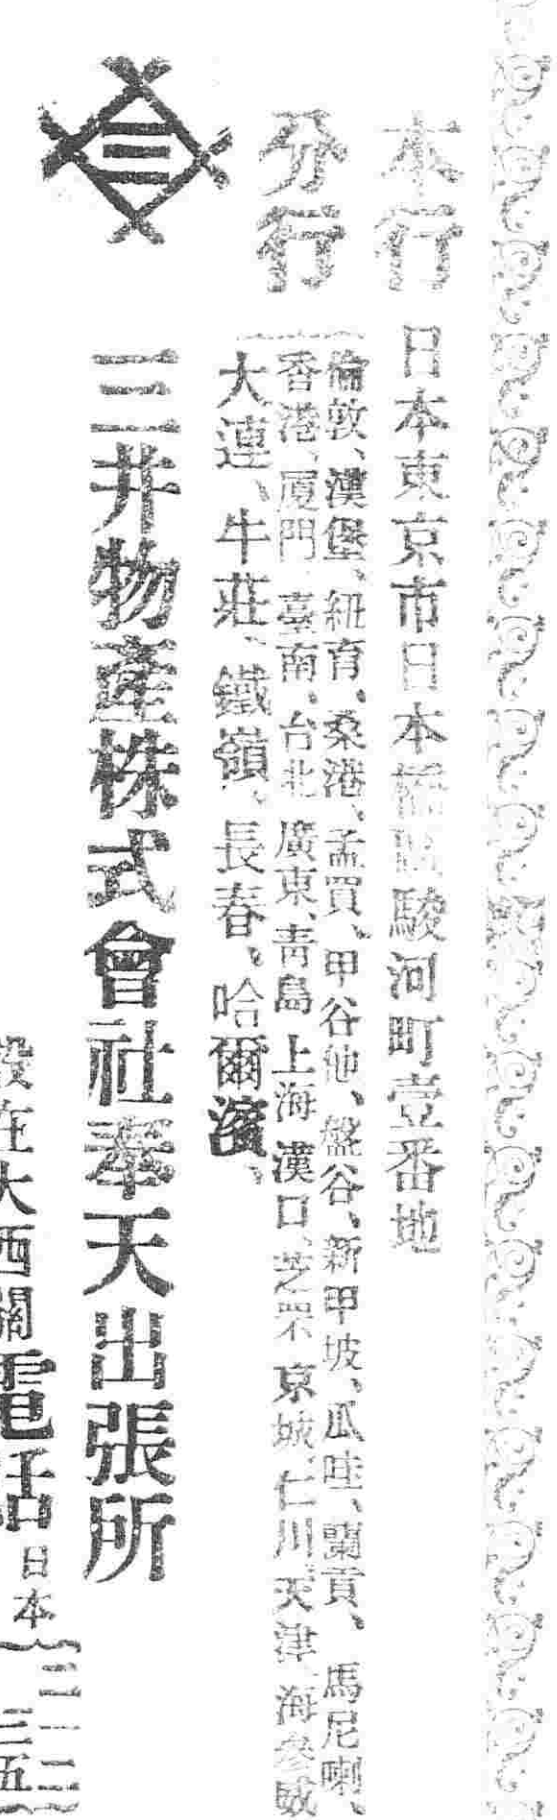 本行 日本東京市日本橋區駿河町壹番地
分行
倫敦、漢堡、紐育、桑港、孟買、甲谷他、盤谷、新甲坡、瓜哇、蘭貢、馬尼喇、
香港、厦門、臺南、台北、廣東、青島、上海、漢口、芝罘、京城、仁川、天津、海參威
大連、牛莊、鐵嶺、長春、哈爾濱、
三井物產株式會社奉天出張所
設在大西關電話日本
二一二
三五